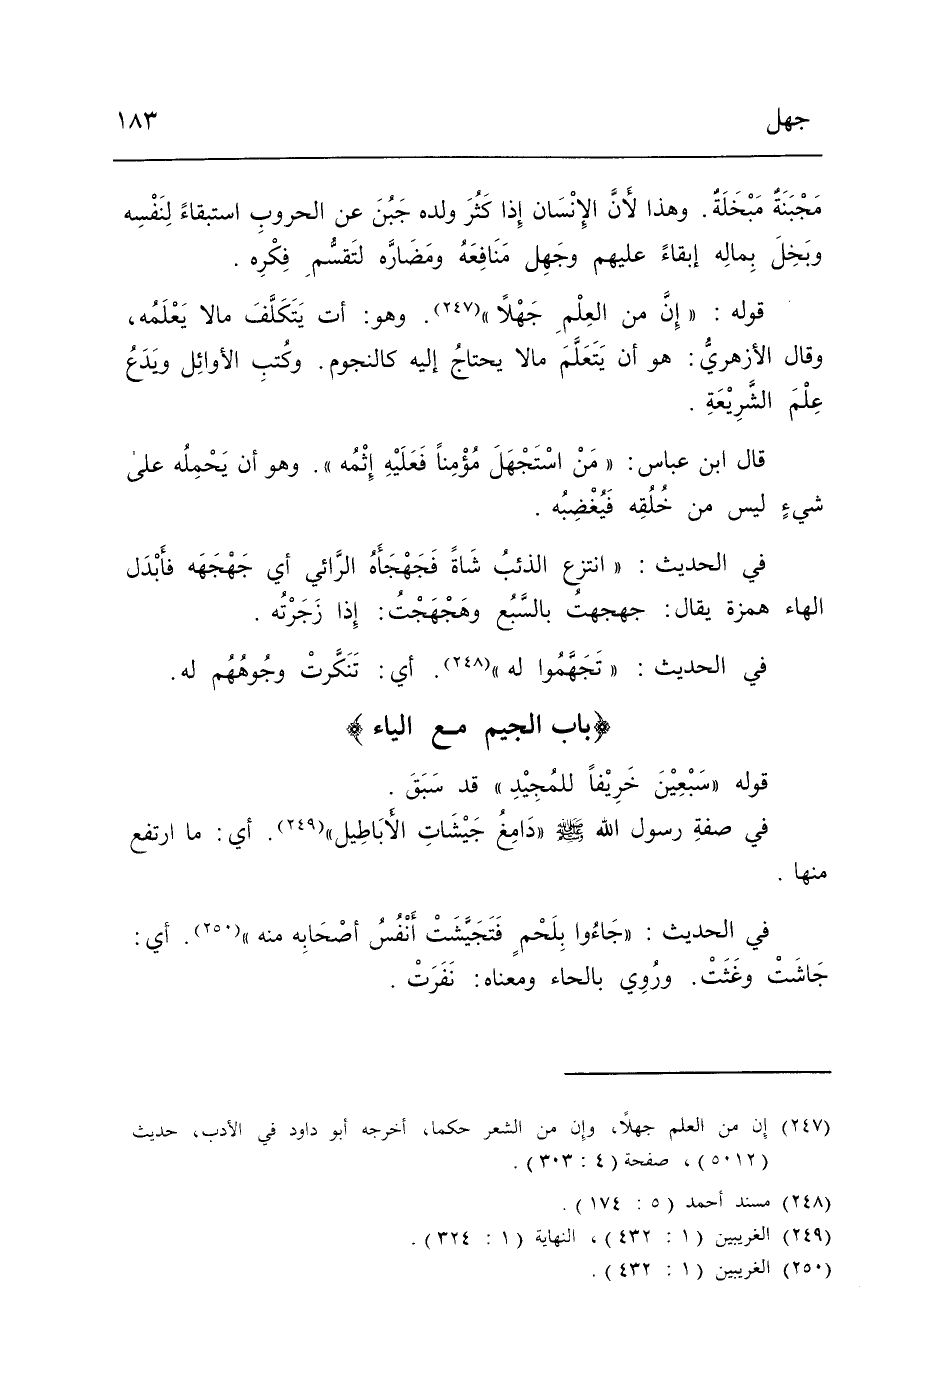 جهل ١٨٣
مَجْبَنَةٌ مَبْخَلَةٌ. وهذا لأَنَّ الإِنْسَان إِذا كَثُرَ ولده جَبُنَ عن الحروبِ استبقاءً لِنَفْسِه
وبَخِلَ بِمالِه إبقاءً عليهم وجَهِل مَنَافِعَهُ ومَضَارَّه لتَقسُّمِ فِكْرِه .
قوله : « إِنَّ من العِلْمِ جَهْلاً »(٢٤٧). وهو: أت يَتَكَلَّفَ مالا يَعْلَمُه،
وقال الأزهريُّ: هو أن يَتَعَلَّمَ مالا يحتاجُ إليه كالنجوم. وكُتبِ الأوائِل ويَدَعُ
عِلْمَ الشَّرِيْعَةِ .
قال ابن عباس: « مَنْ اسْتَجْهَلَ مُؤْمِناً فَعَلَيْهِ إِثْمُه ». وهو أن يَحْمِلُه علىٰ
شيءٍ ليس من خُلُقِه فَيُغْضِبُه .
في الحديث : « انتزع الذئبُ شَاةً فَجَهْجَأَهُ الرَّائي أي جَهْجَهَه فأَبْدَل
الهاء همزة يقال: جهجهتُ بالسَّبُع وهَجْهَجْتُ: إِذا زَجَرْتُه .
في الحديث : « تَجَهَّمُوا له »(٢٤٨). أي: تَنَكَّرتْ وجُوهُهُم له.
﴿باب الجيم مـع الياء ﴾
قوله «سَبْعِيْنَ خَرِيْفاً للمُجِيْدِ » قد سَبَقَ .
في صفةِ رسول الله ﷺ «دَامِغُ جَيْشَاتِ الأَبَاطِيل»(٢٤٩). أي: ما ارتفع
منها .
في الحديث : «جَاءُوا بِلَحْمٍ فَتَجَيَّشَتْ أَنْفُسُ أصْحَابِه منه »(٢٥٠). أي:
جَاشَتْ وغَثَتْ. ورُوِي بالحاء ومعناه: نَفَرَتْ .
(٢٤٧) إن من العلم جهلاً، وإن من الشعر حكما، أخرجه أبو داود في الأدب، حديث
(٥٠١٢) ، صفحة (٤ : ٣٠٣) .
(٢٤٨) مسند أحمد (٥ : ١٧٤) .
(٢٤٩) الغريبين (١ : ٤٣٢) ، النهاية (١ : ٣٢٤) .
(٢٥٠) الغريبين (١ : ٤٣٢) .